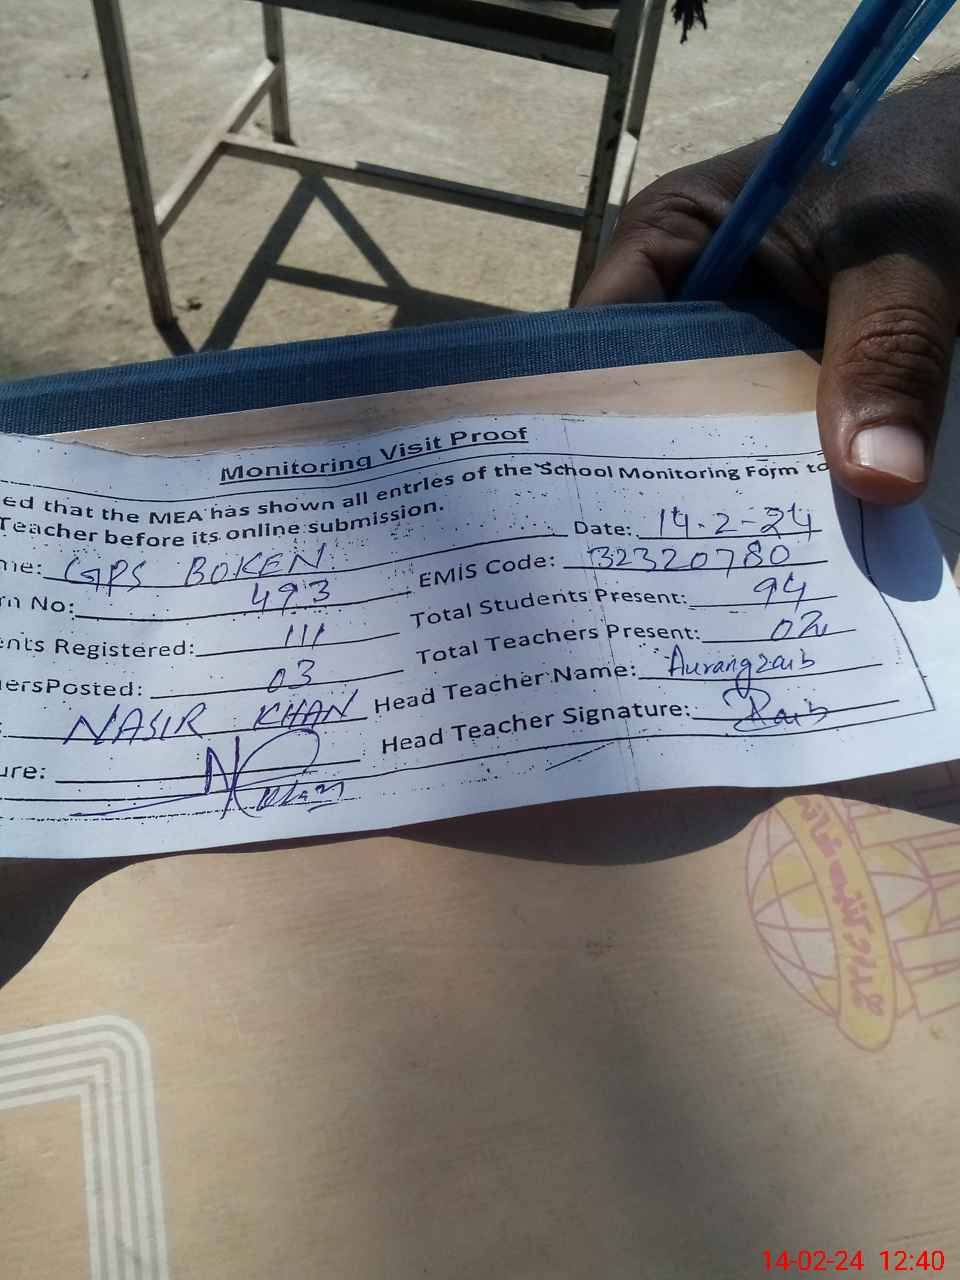 Monitoring Visit Proof
ed that the MEA has shown all entries of the School Monitoring Form to
Teacher before its online submission.
Date: 14-2-24
me: GPS BOKEN
EMIS Code: 32320780
rn No: 493
Total Students Present: 94
ents Registered: 111
Total Teachers Present: 02
hersPosted: 03
Head Teacher Name: Aurangzaib
: NASIR KHAN
Head Teacher Signature: Zaib
ure:
14-02-24 12:40